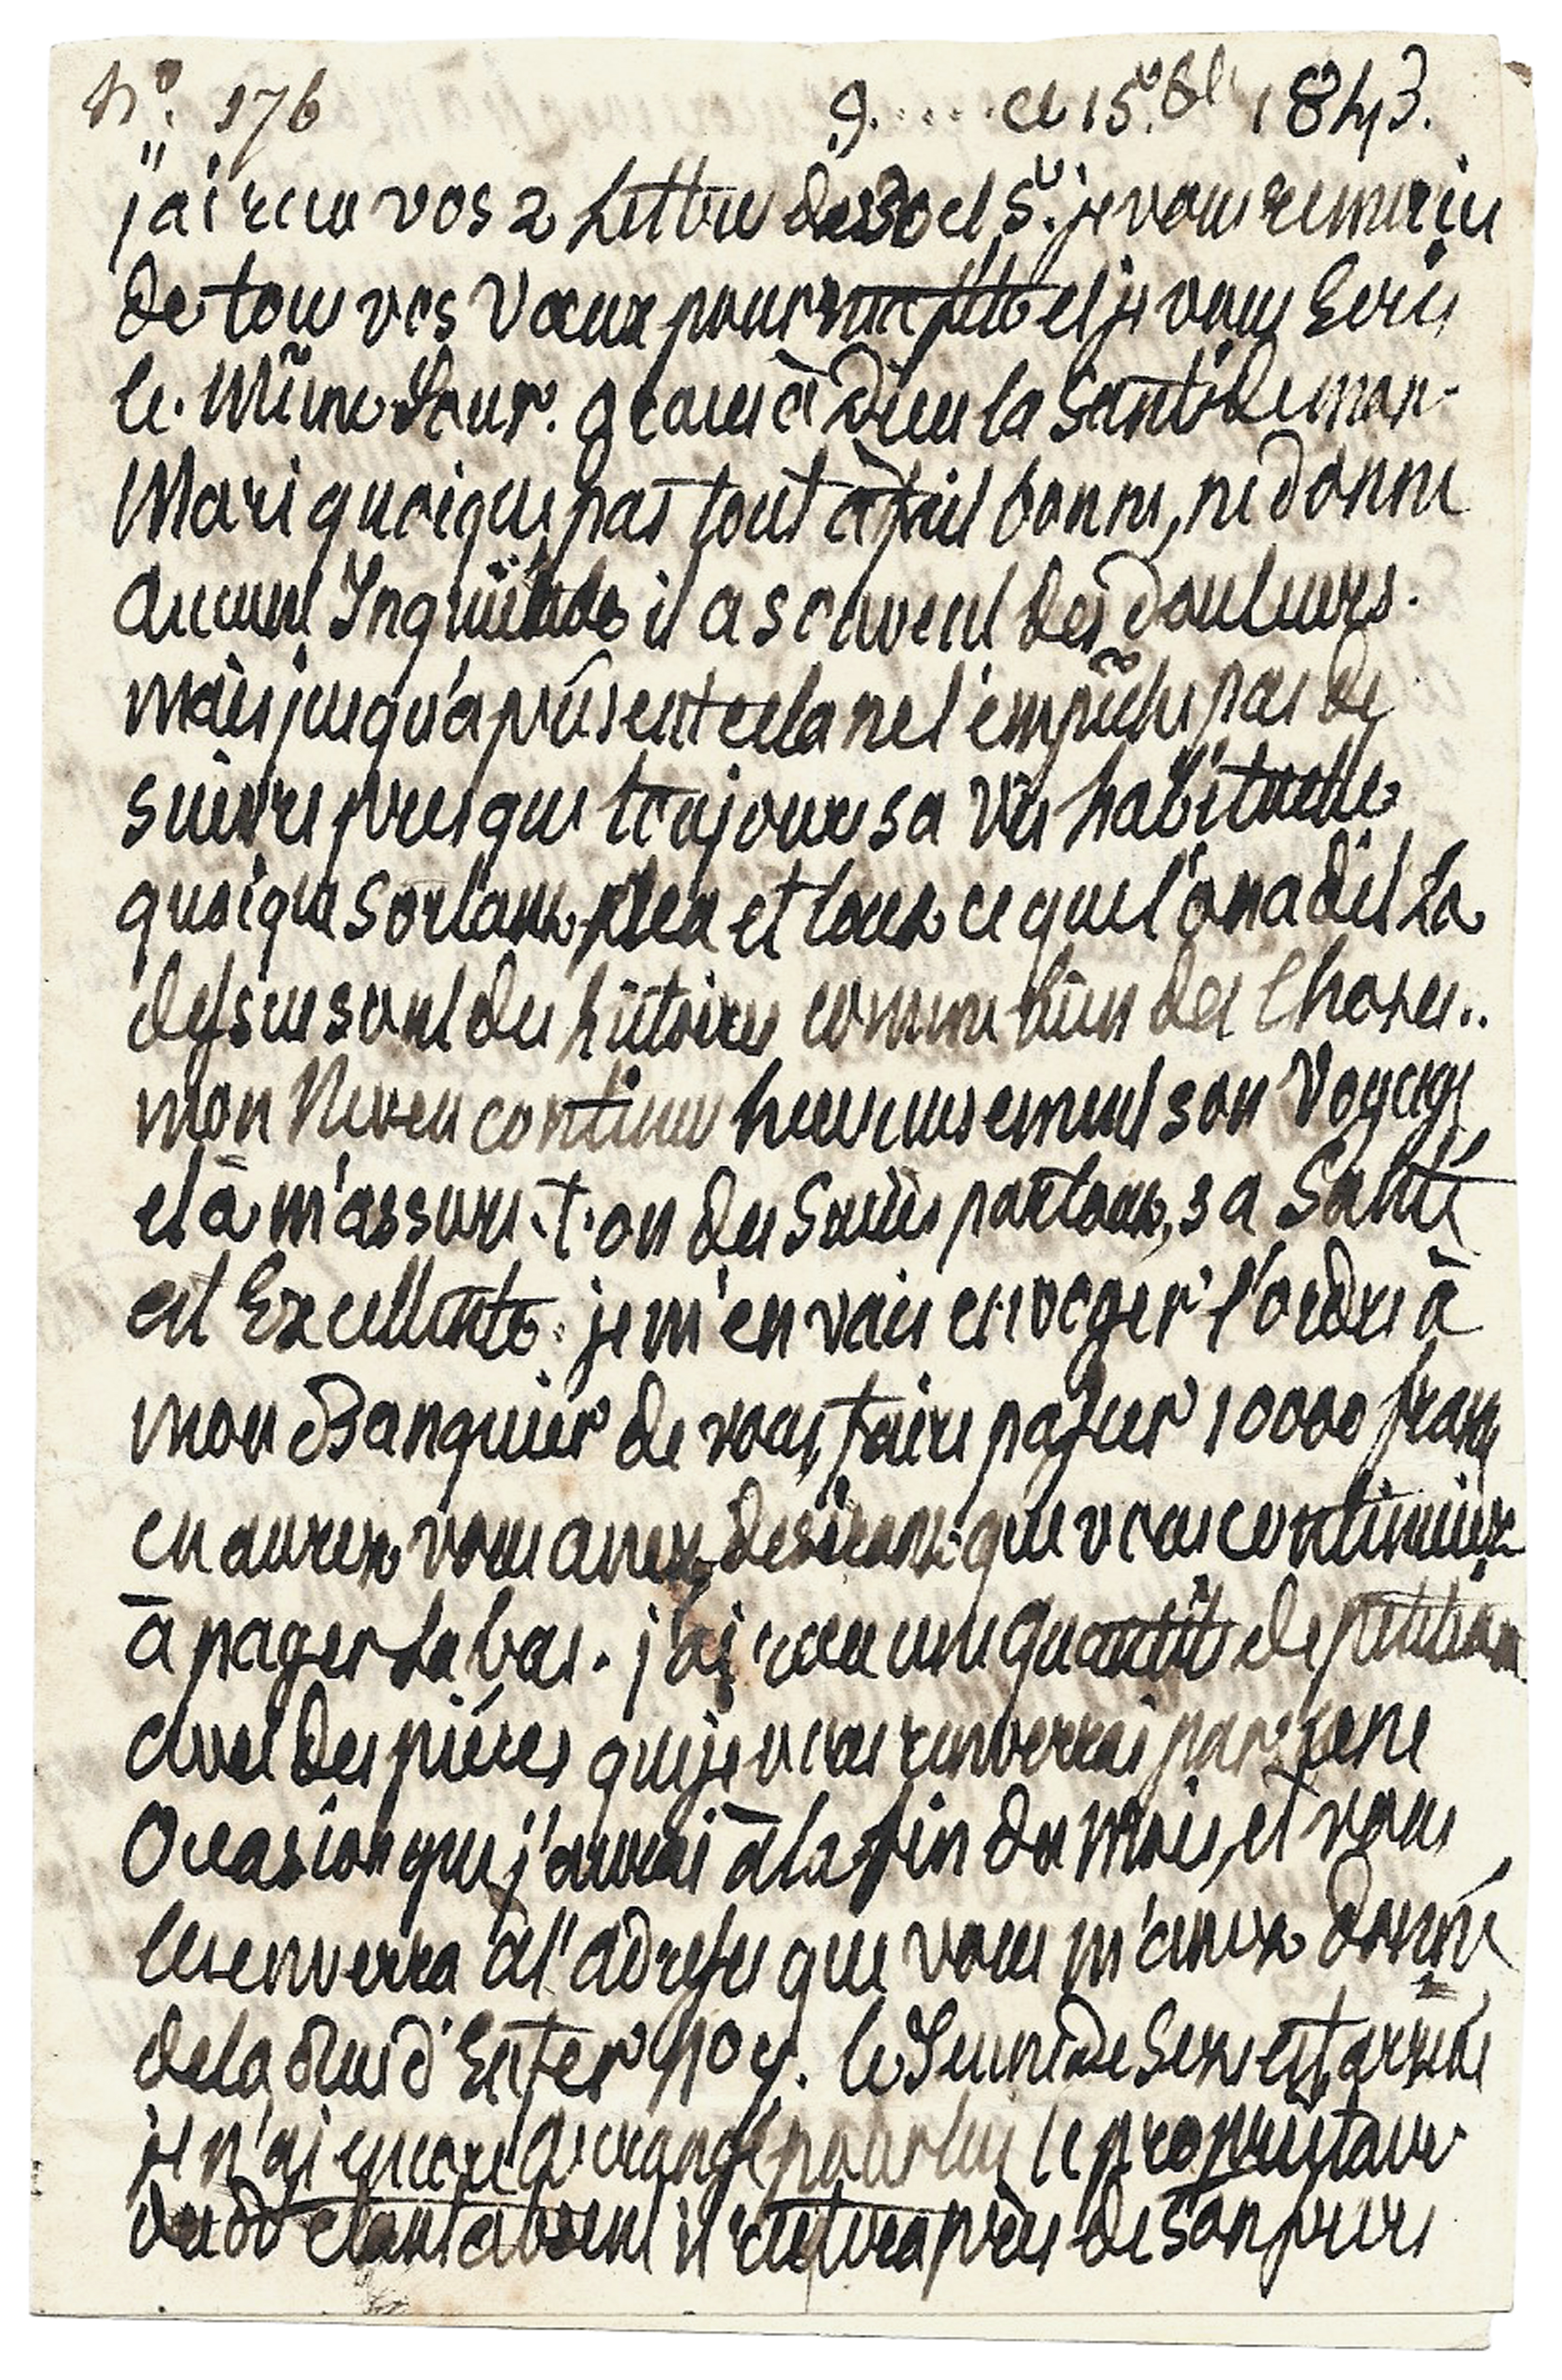 N.º 176 G..... ce 15. 8bre 1843.
j'ai recu vos 2 Lettres des 30 et 5. je vous remercie
de tous vos Vœux pour ma fête et je vous Ecris
le Même Jour. graces à Dieu la Santé de mon
Mari quoique pas tout à fait bonne, ne donne
aucune Inquiétude il a souvent des douleurs.
mais jusqu'a présent cela ne l'empêche pas de
suivre presque toujours sa vie habituelle
quoique sortant peu et tout ce que l'on a dit La
dessus sont des histoires comme bien des Choses..
mon Neveu continue heureusement son Voyage
et a m'assure-t-on du Succès partout, sa Santé
est Excellente. je m'en vais envoyer l'ordre à
mon Banquier de vous faire passer 10000 francs
en aurez vous assez desirant que vous continuiez
à payer La bas. j'ai recu une quantité de petitions
avec des pièces que je vous renverrai par une
Occasion que j'aurai à la fin du Mois, et vous
les enverra à l'adresse que vous m'avez donné
de la Rue d'Enfer nº 4. le Jeune De est arrivé
je n'ai encore arrangé pour lui le propriétaire
du dt étant absent il restera près de son père